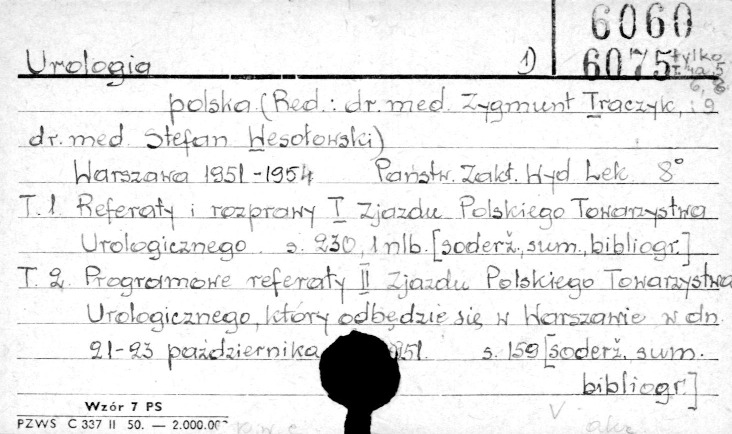 6060
Urologia 1) 6075 tylko
polska (Red.: dr. med. Zygmunt Traczyk, i
dr. med. Stefan Wesołowski)
Warszawa 1951-1954 Państw. Zakł. Wyd Lek 8°
T. 1. Referaty i rozprawy I Zjazdu Polskiego Towarzystwa
Urologicznego s. 230, 1 nlb. [soderž., sum., bibliogr.]
T. 2. Programowe referaty II Zjazdu Polskiego Towarzystwa
Urologicznego, który odbędzie się w Warszawie w dn.
21-23 października 1951. s. 159 [soderž. sum.
bibliogr.]
Wzór 7 PS
PZWS C 337 II 50. — 2.000.00